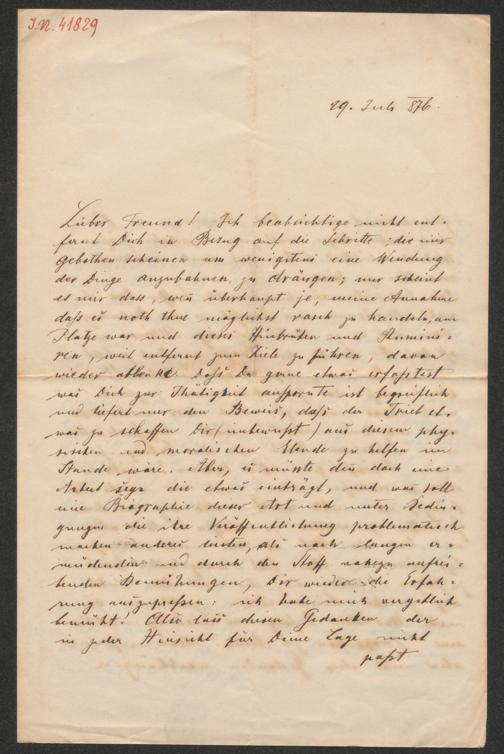 I.N. 41829
29. Juli 876.
Lieber Freund! Ich beabsichtige nicht ent-
fernt Dich in Bezug auf die Schritte, die mir
gebothen scheinen um wenigstens eine Wendung
der Dinge anzubahnen, zu drängen; nur scheint
es mir dass, wenn überhaupt je, meine Annahme
daß es noth thue möglichst rasch zu handeln, am
Platze war und dieses Hinbrüten und Ruminir-
ren, weit entfernt zum Ziele zu führen, davon
wieder ablenkt. Daß Du gerne etwas erfasstest
was Dich zur Thätigkeit anspornte ist begreiflich
und liefert nur den Beweis, daß der Trieb et-
was zu schaffen Dir (unbewußt) aus diesem phy-
sischen und moralischen Elende zu helfen im
Stande wäre. Aber, es müsste denn doch eine
Arbeit sein die etwas einträgt, und was soll
eine Biographie dieser Art und unter Bedin-
gungen die ihre Veröffentlichung problematisch
machen anderes bieten, als nach langen er-
müdenden und durch den Stoff nahezu aufrei-
benden Bemühungen, Dir wieder die Erfah-
rung auszupressen: ich habe mich vergeblich
bemüht! Also lass diesen Gedanken der
in jeder Hinsicht für Deine Lage nicht
paßt